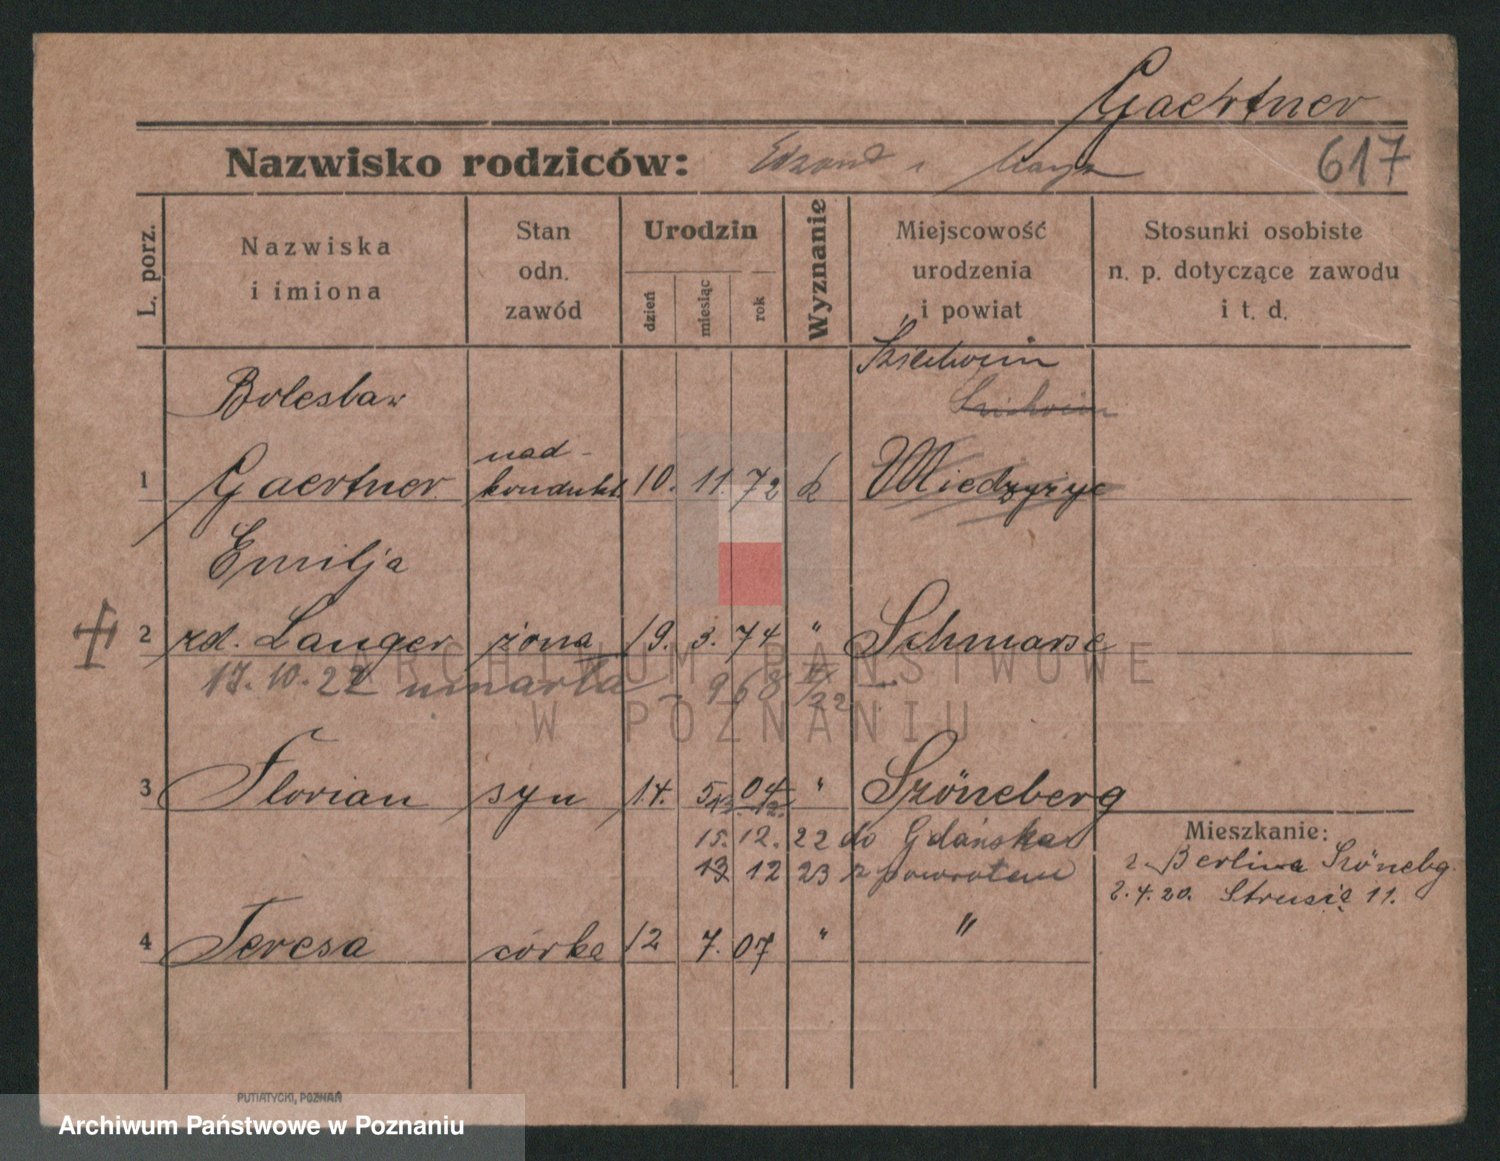 Gaertner
Nazwisko rodziców:
617
L. porz.
Nazwiska
i imiona
Stan
odn.
zawód
Urodzin
dzień
miesiąc
rok
Wyznanie
Miejscowość
urodzenia
i powiat
Stosunki osobiste
n. p. dotyczące zawodu
i t. d.
Bolesław
nad-
1 Gaertner kondukt 10. 11. 72 k Miedzyrzyc
Emilja
2 zd. Langer żona 19. 3. 74 " Schmarse
17.10.22 umarła 968
3 Florian syn 14. 5 04 " Szöneberg
15. 12. 22 do Gdańska
13 12 23 z powrotem
Mieszkanie:
z Berlina Szönebg.
2.4.20. Strusia 11.
4 Teresa córka 12 7. 07 " "
PUTIATYCKI, POZNAŃ
ARCHIWUM PAŃSTWOWE
W POZNANIU
Archiwum Państwowe w Poznaniu